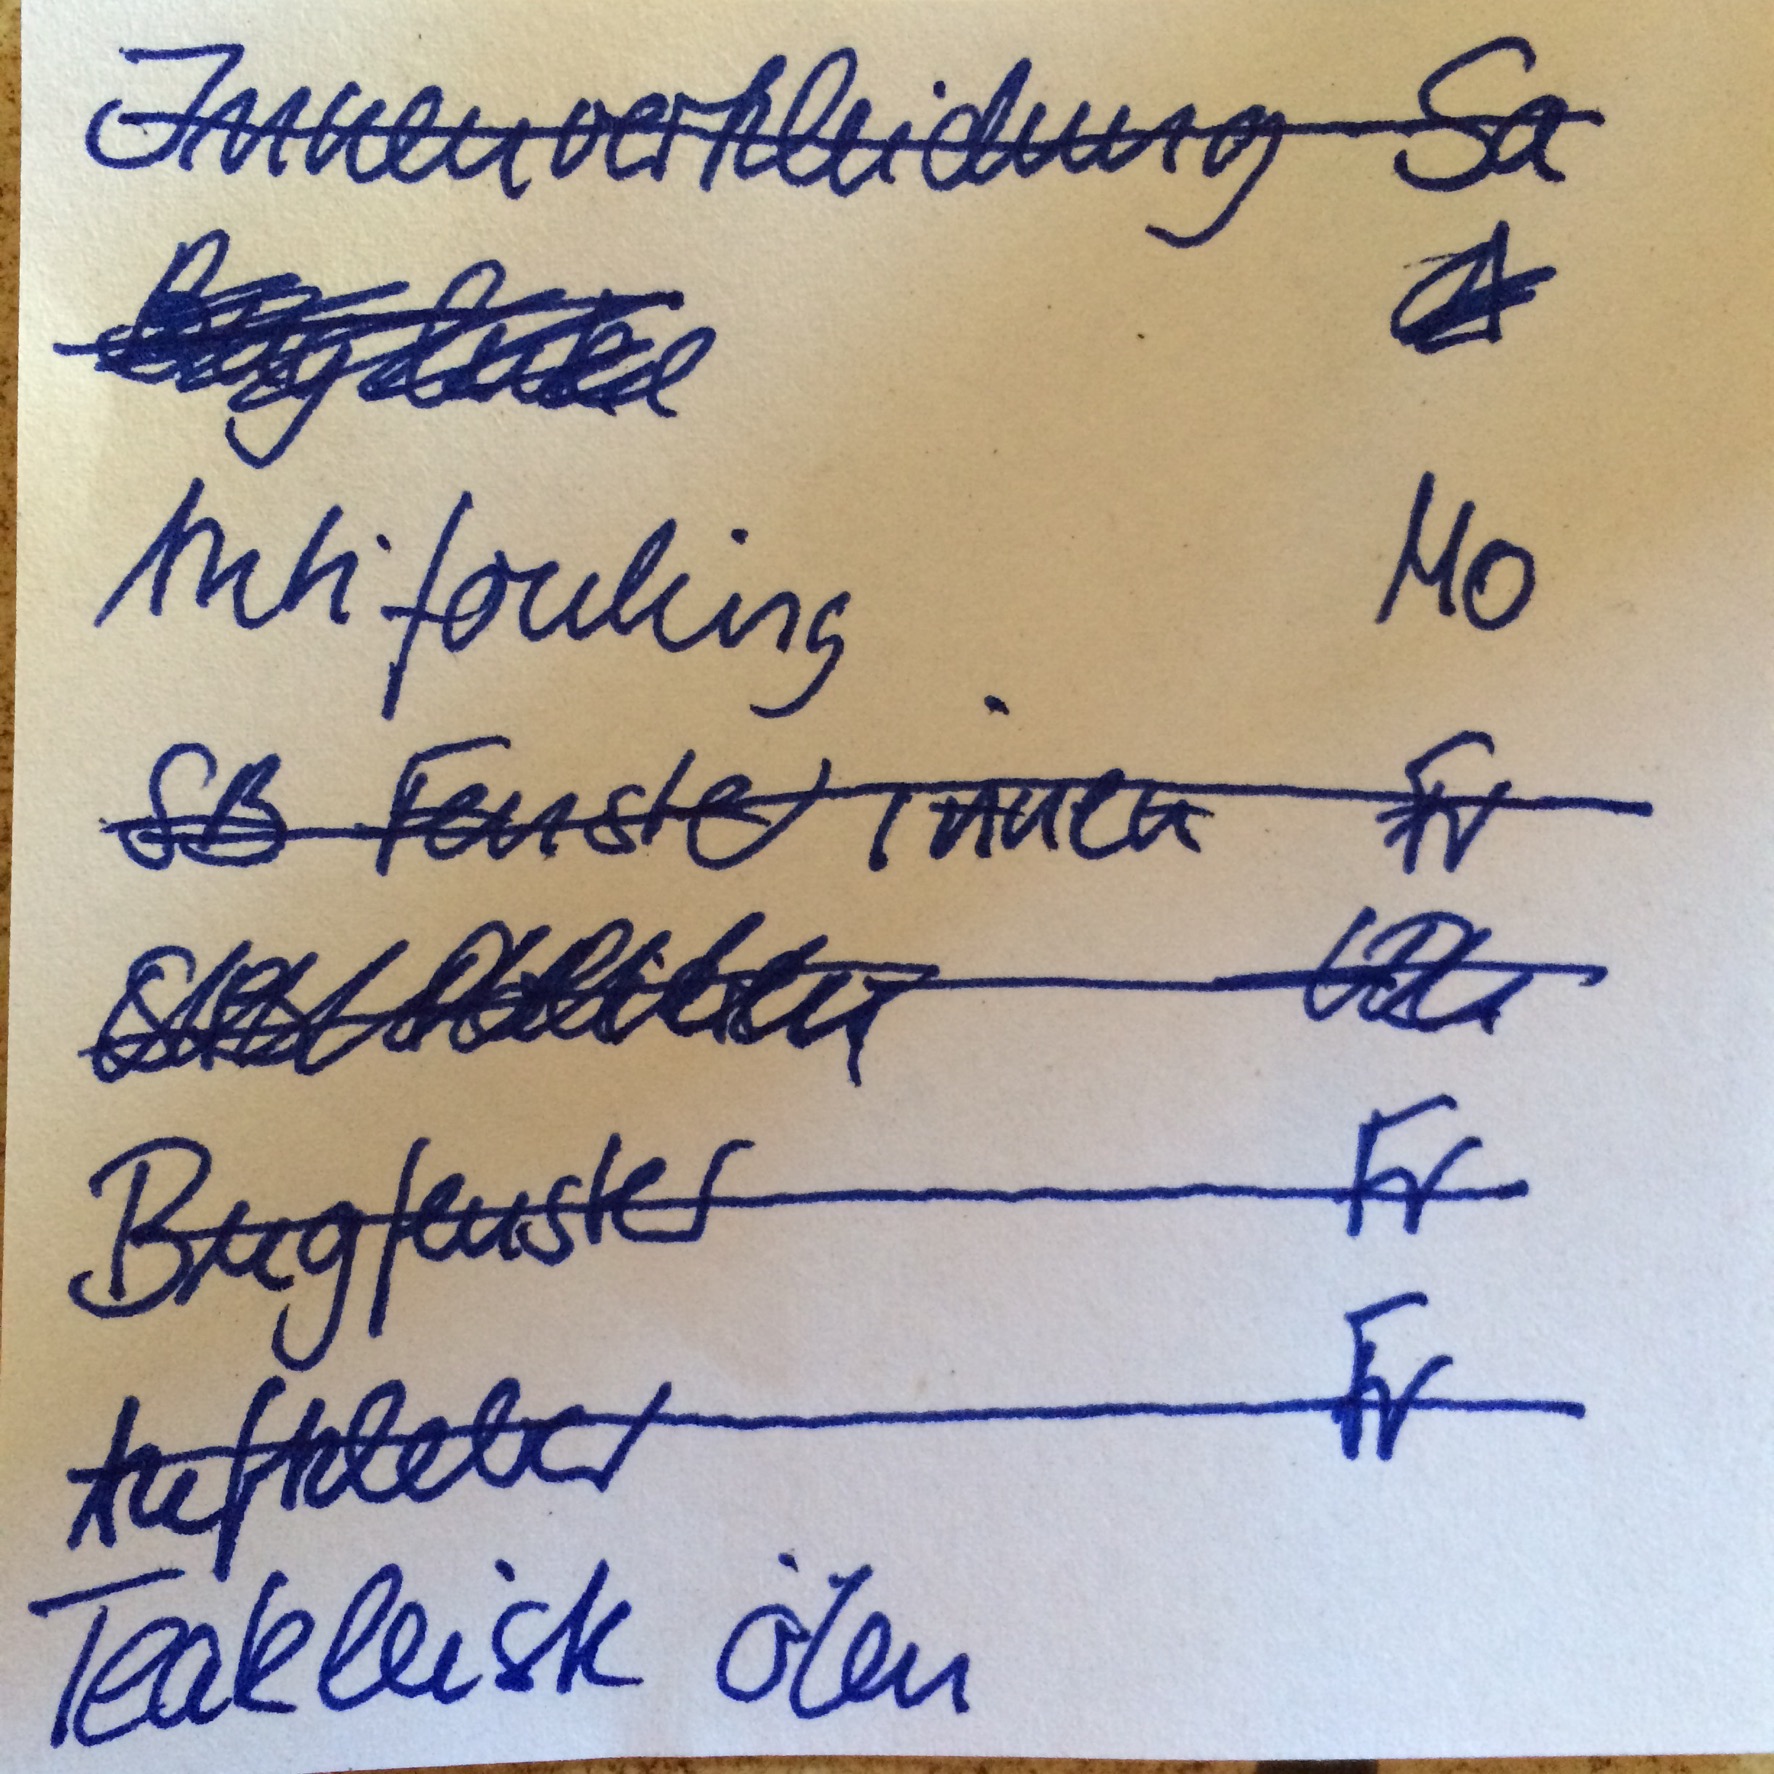 Innenverkleidung Sa
Bugluke
Antifouling Mo
SB Fenster innen Fr
Bugfenster Fr
Aufkleber Fr
Teakleiste ölen